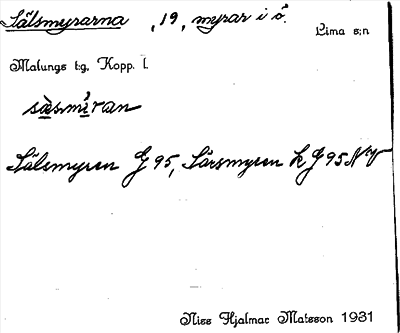 Sälsmyrarna , 19, myrar i ö. Lima s:n
Malungs t:g, Kopp. l.
sæ̀smı̀ran
Sälsmyren G 95, Särsmyren L G 95 NV
Niss Hjalmar Matsson 1931